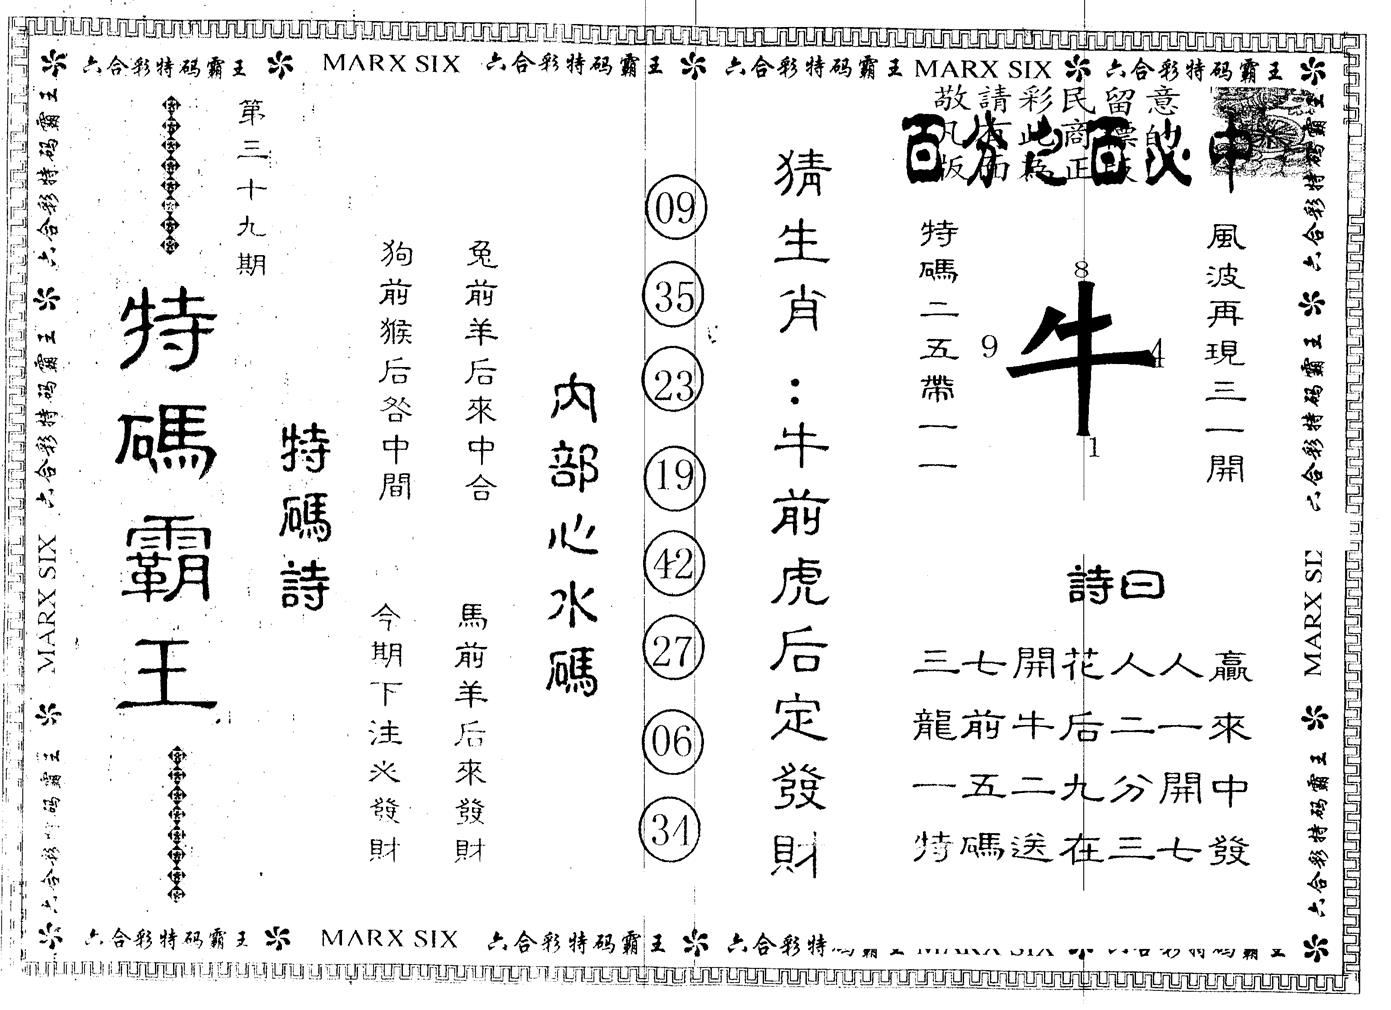 六合彩特码霸王 MARX SIX 六合彩特码霸王 六合彩特码霸王 MARX SIX 六合彩特码霸王
敬請彩民留意
百分之百必中
風波再現三一開
8
9
牛
4
1
特碼二五帶一一
詩曰
三七開花人人贏
龍前牛后二一來
一五二九分開中
特碼送在三七發
猜生肖:牛前虎后定發財
09
35
23
19
42
27
06
31
内部心水碼
兔前羊后來中合
馬前羊后來發財
狗前猴后咎中間
今期下注必發財
特碼詩
第三十九期
特碼霸王
六合彩特码霸王 六合彩特码霸王 MARX SIX 六合彩特码霸王
六合彩特码霸王 六合彩特码霸王 MARX SIX 六合彩特码霸王
六合彩特码霸王 MARX SIX 六合彩特码霸王 六合彩特码霸王 MARX SIX 六合彩特码霸王